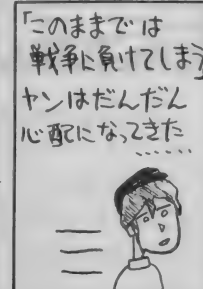 「このままでは
戦争に負けてしまう」
ヤンはだんだん
心配になってきた
……